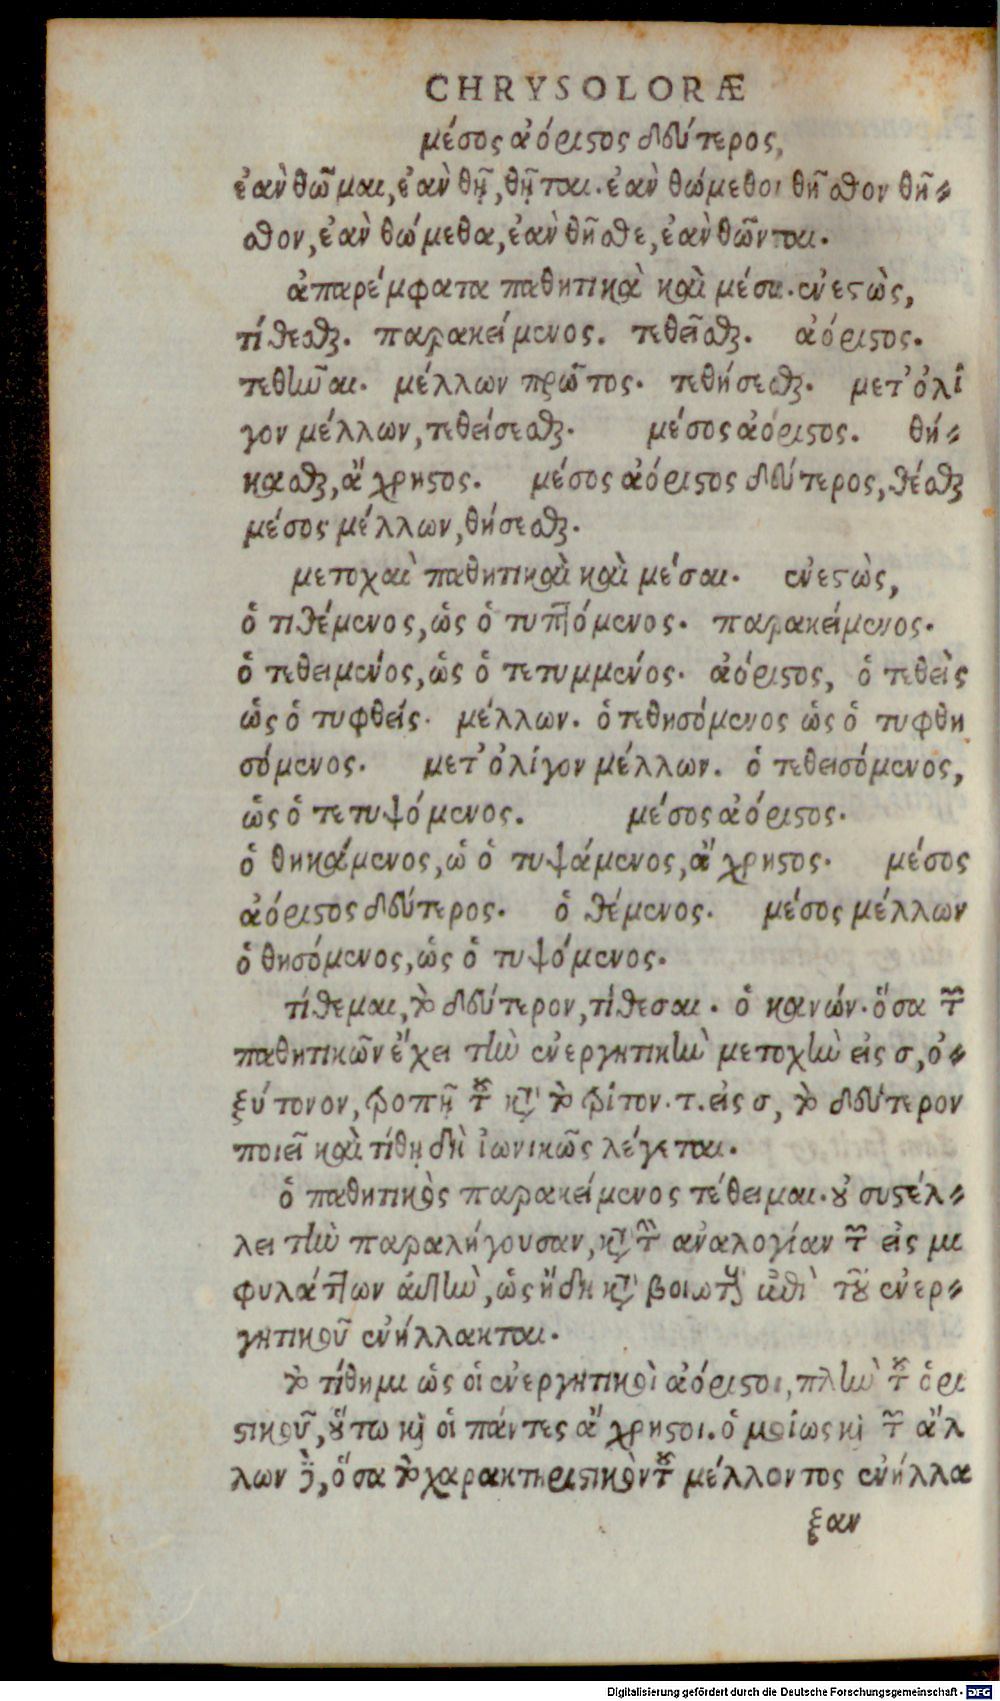 CHRYSOLORÆ
μέσος ἀόριστος δεύτερος,
ἐὰν θῶμαι, ἐὰν θῇ, θῆται. ἐὰν θώμεθον θῆσθον θῆ-
σθον, ἐὰν θώμεθα, ἐὰν θῆσθε, ἐὰν θῶνται.
ἀπαρέμφατα παθητικὰ καὶ μέσα. ἐνεστὼς,
τίθεσθαι. παρακείμενος. τεθεῖσθαι. ἀόριστος.
τεθῆναι. μέλλων πρῶτος. τεθήσεσθαι. μετ' ὀλί
γον μέλλων, τεθείσεσθαι. μέσος ἀόριστος. θή-
κασθαι, ἄχρηστος. μέσος ἀόριστος δεύτερος, θέσθαι
μέσος μέλλων, θήσεσθαι.
μετοχαὶ παθητικαὶ καὶ μέσαι. ἐνεστὼς,
ὁ τιθέμενος, ὡς ὁ τυπτόμενος. παρακείμενος.
ὁ τεθειμένος, ὡς ὁ τετυμμένος. ἀόριστος, ὁ τεθεὶς
ὡς ὁ τυφθείς. μέλλων. ὁ τεθησόμενος ὡς ὁ τυφθη
σόμενος. μετ' ὀλίγον μέλλων. ὁ τεθεισόμενος,
ὡς ὁ τετυψόμενος. μέσος ἀόριστος.
ὁ θηκάμενος, ὡ ὁ τυψάμενος, ἄχρηστος. μέσος
ἀόριστος δεύτερος. ὁ θέμενος. μέσος μέλλων
ὁ θησόμενος, ὡς ὁ τυψόμενος.
τίθεμαι, τὸ δεύτερον, τίθεσαι. ὁ κανών. ὅσα τῶν
παθητικῶν ἔχει τὴν ἐνεργητικὴν μετοχὴν εἰς σ, ὀ-
ξύτονον, τροπῇ τοῦ κατὰ τὸ τρίτον. τ. εἰς σ, τὸ δεύτερον
ποιεῖ καὶ τίθῃ δὴ ἰωνικῶς λέγεται.
ὁ παθητικὸς παρακείμενος τέθειμαι. οὐ συστέλ-
λει τὴν παραλήγουσαν, κατὰ τὴν ἀναλογίαν τῶν εἰς μι
φυλάττων αὐτὴν, ὡς ἤδη κατὰ βοιωτοὺς ἀπὸ τοῦ ἐνερ-
γητικοῦ ἐνήλλακται.
τὸ τίθημι ὡς οἱ ἐνεργητικοὶ ἀόριστοι, πλὴν τοῦ ὁρι
στικοῦ, οὕτω καὶ οἱ πάντες ἄχρηστοι. ὁμοίως καὶ τῶν ἄλ
λων δὲ, ὅσα τὸ χαρακτηριστικὸν τοῦ μέλλοντος ἐνήλλα
ξαν
Digitalisierung gefördert durch die Deutsche Forschungsgemeinschaft - DFG